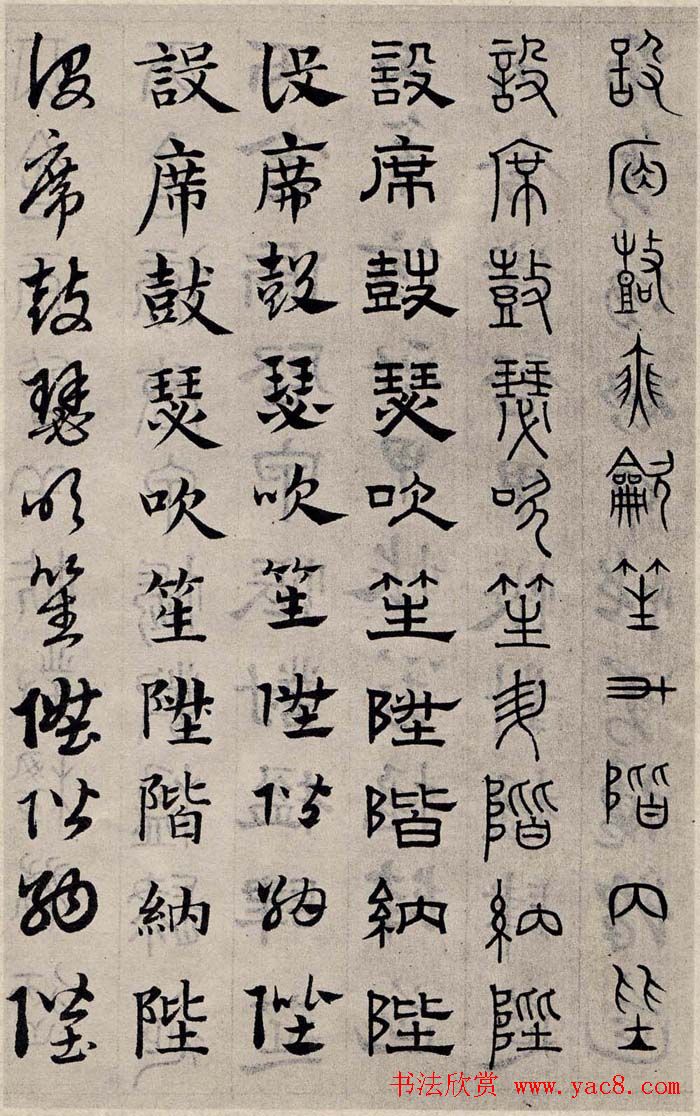 設席鼓瑟吹笙升階內陛
設席鼓瑟吹笙升階納陛
設席鼓瑟吹笙陞階納陛
設席鼓瑟吹笙陞階納陛
設席鼓瑟吹笙陞階納陛
設席鼓瑟吹笙陞階納陛
书法欣赏 www.yac8.com